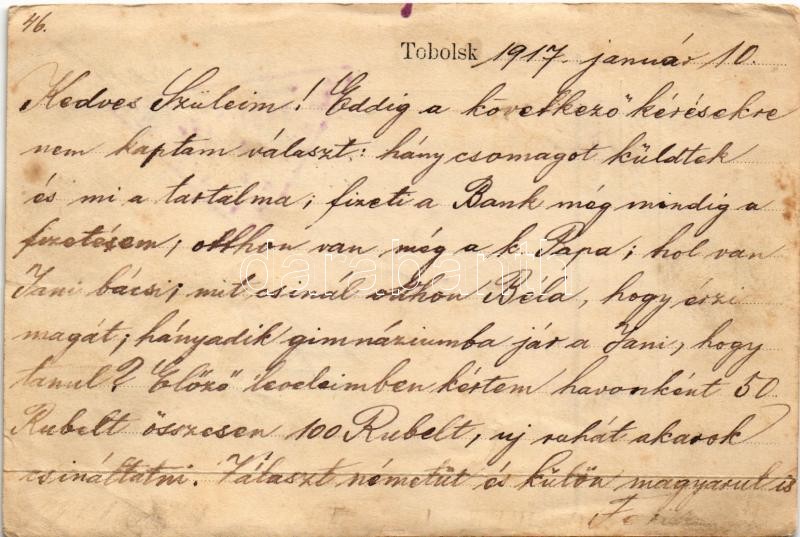 46.
Tobolsk 1917. január 10.
Kedves Szüleim! Eddig a következő kérésekre
nem kaptam választ: hány csomagot küldtek
és mi a tartalma; fizeti a Bank még mindig a
fizetésem; otthon van még a k. Papa; hol van
Jani bácsi; mit csinál otthon Béla, hogy érzi
magát; hányadik gimnáziumba jár a Jani, hogy
tanul? Előző leveleimben kértem havonként 50
Rubelt összesen 100 Rubelt, uj ruhát akarok
csináltatni. Választ németül és külön magyarul is
darabanth